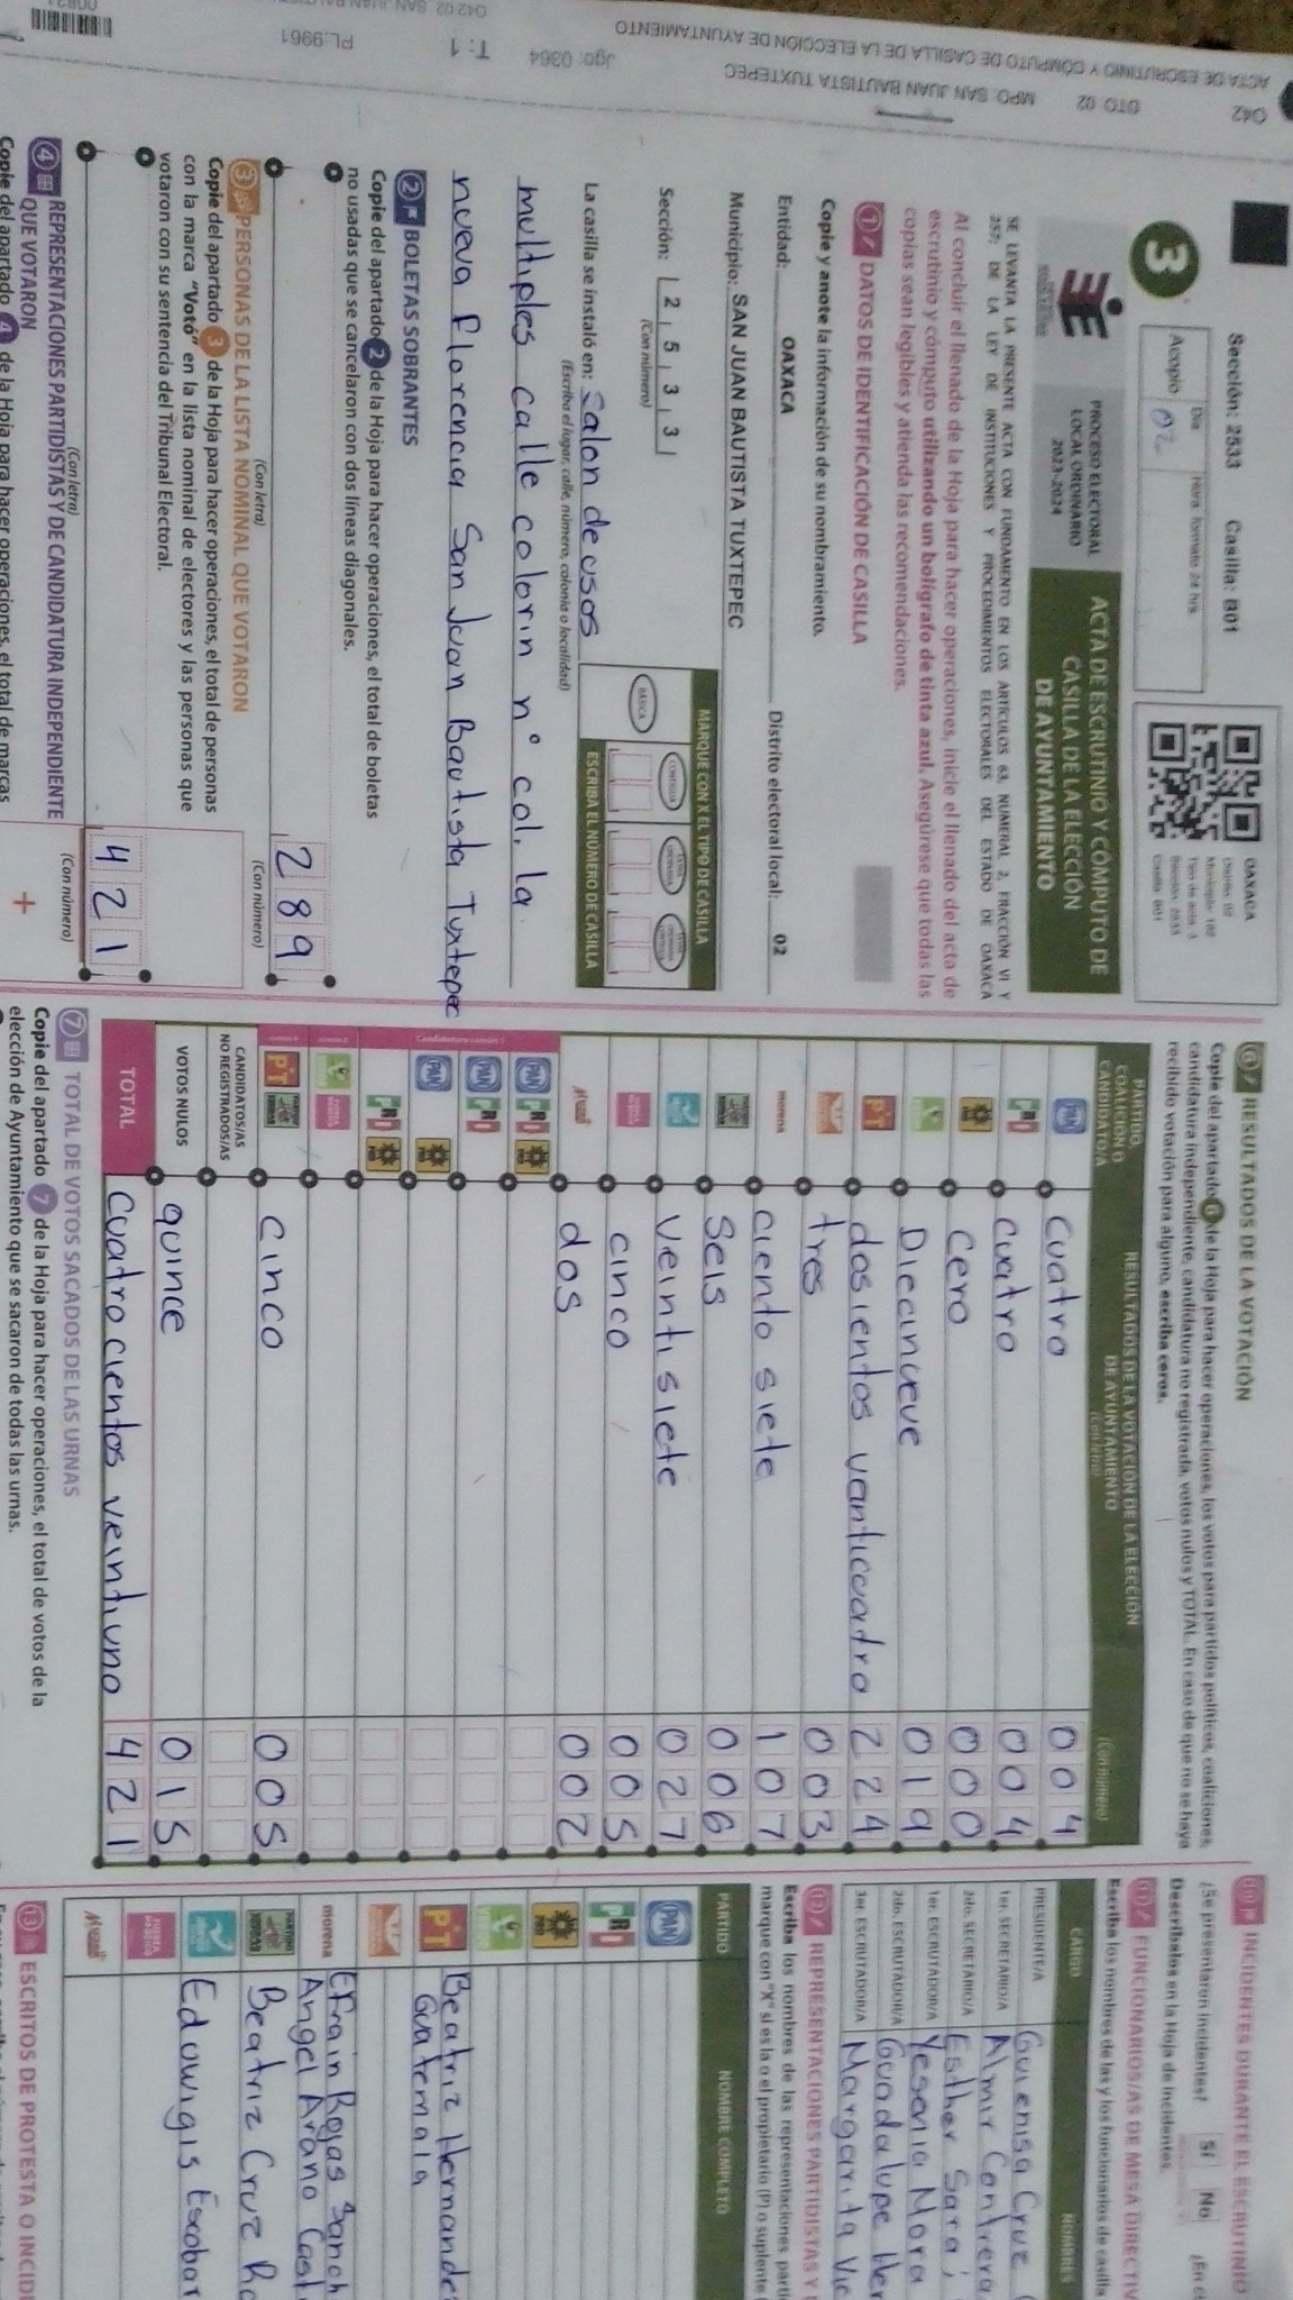 ACTA DE ESCRUTINIO Y CÓMPUTO DE CASILLA DE LA ELECCIÓN DE AYUNTAMIENTO
042 DTO 02 MPO. SAN JUAN BAUTISTA TUXTEPEC
Jgo: 0364 T: 1 PL.9961
Sección: 2533 Casilla: B01
Día
Hora formato 24 hrs.
Acopio 02
3
OAXACA
PROCESO ELECTORAL
LOCAL ORDINARIO
2023-2024
ACTA DE ESCRUTINIO Y CÓMPUTO DE
CASILLA DE LA ELECCIÓN
DE AYUNTAMIENTO
SE LEVANTA LA PRESENTE ACTA CON FUNDAMENTO EN LOS ARTÍCULOS 63, NUMERAL 2, FRACCIÓN VI Y
257; DE LA LEY DE INSTITUCIONES Y PROCEDIMIENTOS ELECTORALES DEL ESTADO DE OAXACA
Al concluir el llenado de la Hoja para hacer operaciones, inicie el llenado del acta de
escrutinio y cómputo utilizando un bolígrafo de tinta azul. Asegúrese que todas las
copias sean legibles y atienda las recomendaciones.
1 DATOS DE IDENTIFICACIÓN DE CASILLA
Copie y anote la información de su nombramiento.
Entidad: OAXACA Distrito electoral local: 02
Municipio: SAN JUAN BAUTISTA TUXTEPEC
Sección: 2 5 3 3
(Con número)
MARQUE CON X EL TIPO DE CASILLA
BÁSICA
CONTIGUA
ESCRIBA EL NÚMERO DE CASILLA
La casilla se instaló en: Salon de usos
(Escriba el lugar, calle, número, colonia o localidad)
multiples calle colorin n° col. la
nueva florencia San Juan Bautista Tuxtepec
2 BOLETAS SOBRANTES
Copie del apartado 2 de la Hoja para hacer operaciones, el total de boletas
no usadas que se cancelaron con dos líneas diagonales.
289
(Con letra) (Con número)
3 PERSONAS DE LA LISTA NOMINAL QUE VOTARON
Copie del apartado 3 de la Hoja para hacer operaciones, el total de personas
con la marca "Votó" en la lista nominal de electores y las personas que
votaron con su sentencia del Tribunal Electoral.
421
(Con letra) (Con número)
4 REPRESENTACIONES PARTIDISTAS Y DE CANDIDATURA INDEPENDIENTE
QUE VOTARON
+
Copie del apartado 4 de la Hoja para hacer operaciones, el total de marcas
6 RESULTADOS DE LA VOTACIÓN
Copie del apartado 6 de la Hoja para hacer operaciones, los votos para partidos políticos, coaliciones,
candidatura independiente, candidatura no registrada, votos nulos y TOTAL. En caso de que no se haya
recibido votación para alguno, escriba ceros.
PARTIDO,
COALICIÓN O
CANDIDATO/A
RESULTADOS DE LA VOTACIÓN DE LA ELECCIÓN
DE AYUNTAMIENTO
(Con letra)
(Con número)
PAN Cuatro 004
PRI Cuatro 004
PRD Cero 000
Diecinueve 019
PT dosientos venticuatro 224
tres 003
morena ciento siete 107
Seis 006
Veinti siete 027
cinco 005
dos 002
PAN PRI PRD
PAN PRI
PAN PRD
PRI PRD
PT cinco 005
CANDIDATOS/AS
NO REGISTRADOS/AS
VOTOS NULOS quince 015
TOTAL Cuatro cientos veintiuno 421
7 TOTAL DE VOTOS SACADOS DE LAS URNAS
Copie del apartado 7 de la Hoja para hacer operaciones, el total de votos de la
elección de Ayuntamiento que se sacaron de todas las urnas.
INCIDENTES DURANTE EL ESCRUTINIO
¿Se presentaron incidentes? Sí No
Descríbalos en la Hoja de Incidentes.
11 FUNCIONARIOS/AS DE MESA DIRECTIV
Escriba los nombres de las y los funcionarios de casilla
CARGO NOMBRES
PRESIDENTE/A Guiensa Cruz
1er. SECRETARIO/A Almir Contrera
2do. SECRETARIO/A Esther Sara
1er. ESCRUTADOR/A Yesenia Mora
2do. ESCRUTADOR/A Guadalupe Her
3er. ESCRUTADOR/A Margarita Vic
12 REPRESENTACIONES PARTIDISTAS Y
Escriba los nombres de las representaciones parti
marque con "X" si es la o el propietario (P) o suplente
PARTIDO NOMBRE COMPLETO
PAN
PRI
PRD
PT Beatriz Hernande
Guatemala
morena Efrain Rojas Sanch
Angel Arano Cast
Beatriz Cruz Ro
Eduwigis Escobar
13 ESCRITOS DE PROTESTA O INCIDE